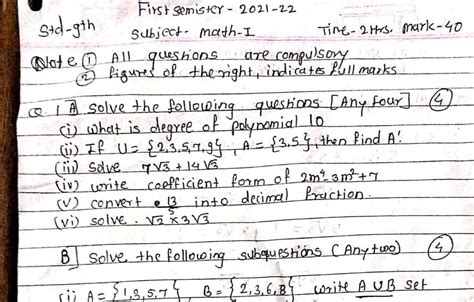 First semister - 2021-22
Std-9th subject - math-I Time - 2Hrs. Mark-40
Note ① All questions are compulsory
② figures of the right, indicates full marks
Q 1 A solve the following questions [Any four] ④
(i) what is degree of polynomial 10
(ii) If U = {2,3,5,7,9}, A = {3,5}, then find A'.
(iii) Solve 7√3 + 14√3
(iv) write coefficient form of 2m⁴-3m²+7
(v) convert 13/5 into decimal fraction.
(vi) solve. √2 × 3√3
B] Solve the following subquestions (Any two) ④
(i) A = {1,3,5,7} B = {2,3,6,8} write A∪B set